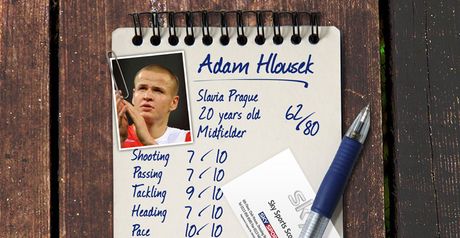 Adam Hlousek
Slavia Prague
20 years old
Midfielder
62/80
Shooting 7/10
Passing 7/10
Tackling 9/10
Heading 7/10
Pace 10/10
sky
Sky Sports
SKY SPORTS